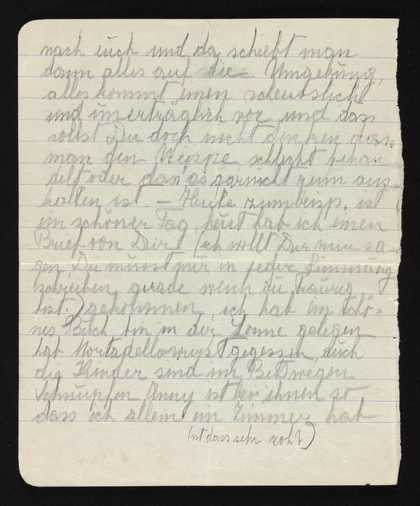 nach euch und da schiebt man
dann alles auf die Umgebung,
alles kommt einen scheusslich
und unerträglich vor und das
sollst Du doch nicht denken dass
man den schlecht behan
delt oder dass es garnicht zum aus
halten ist. – Heute zumbeisp. ist
ein schöner Tag, heut hab ich einen
Brief von Dir (ich wollt Dir nur sa
gen, Du musst mir in jeder Stimmung
schreiben, grade wenn Du traurig
bist.) bekommen, ich hab ein schö-
nes Buch bin in der Sonne gelegen
hab Mortadellawurst gegessen, auch
die Kinder sind im Bett wegen
Schnupfen Anny ist bei ihnen so
dass ich allein ein Zimmer hab
(ist das sehr roh?)